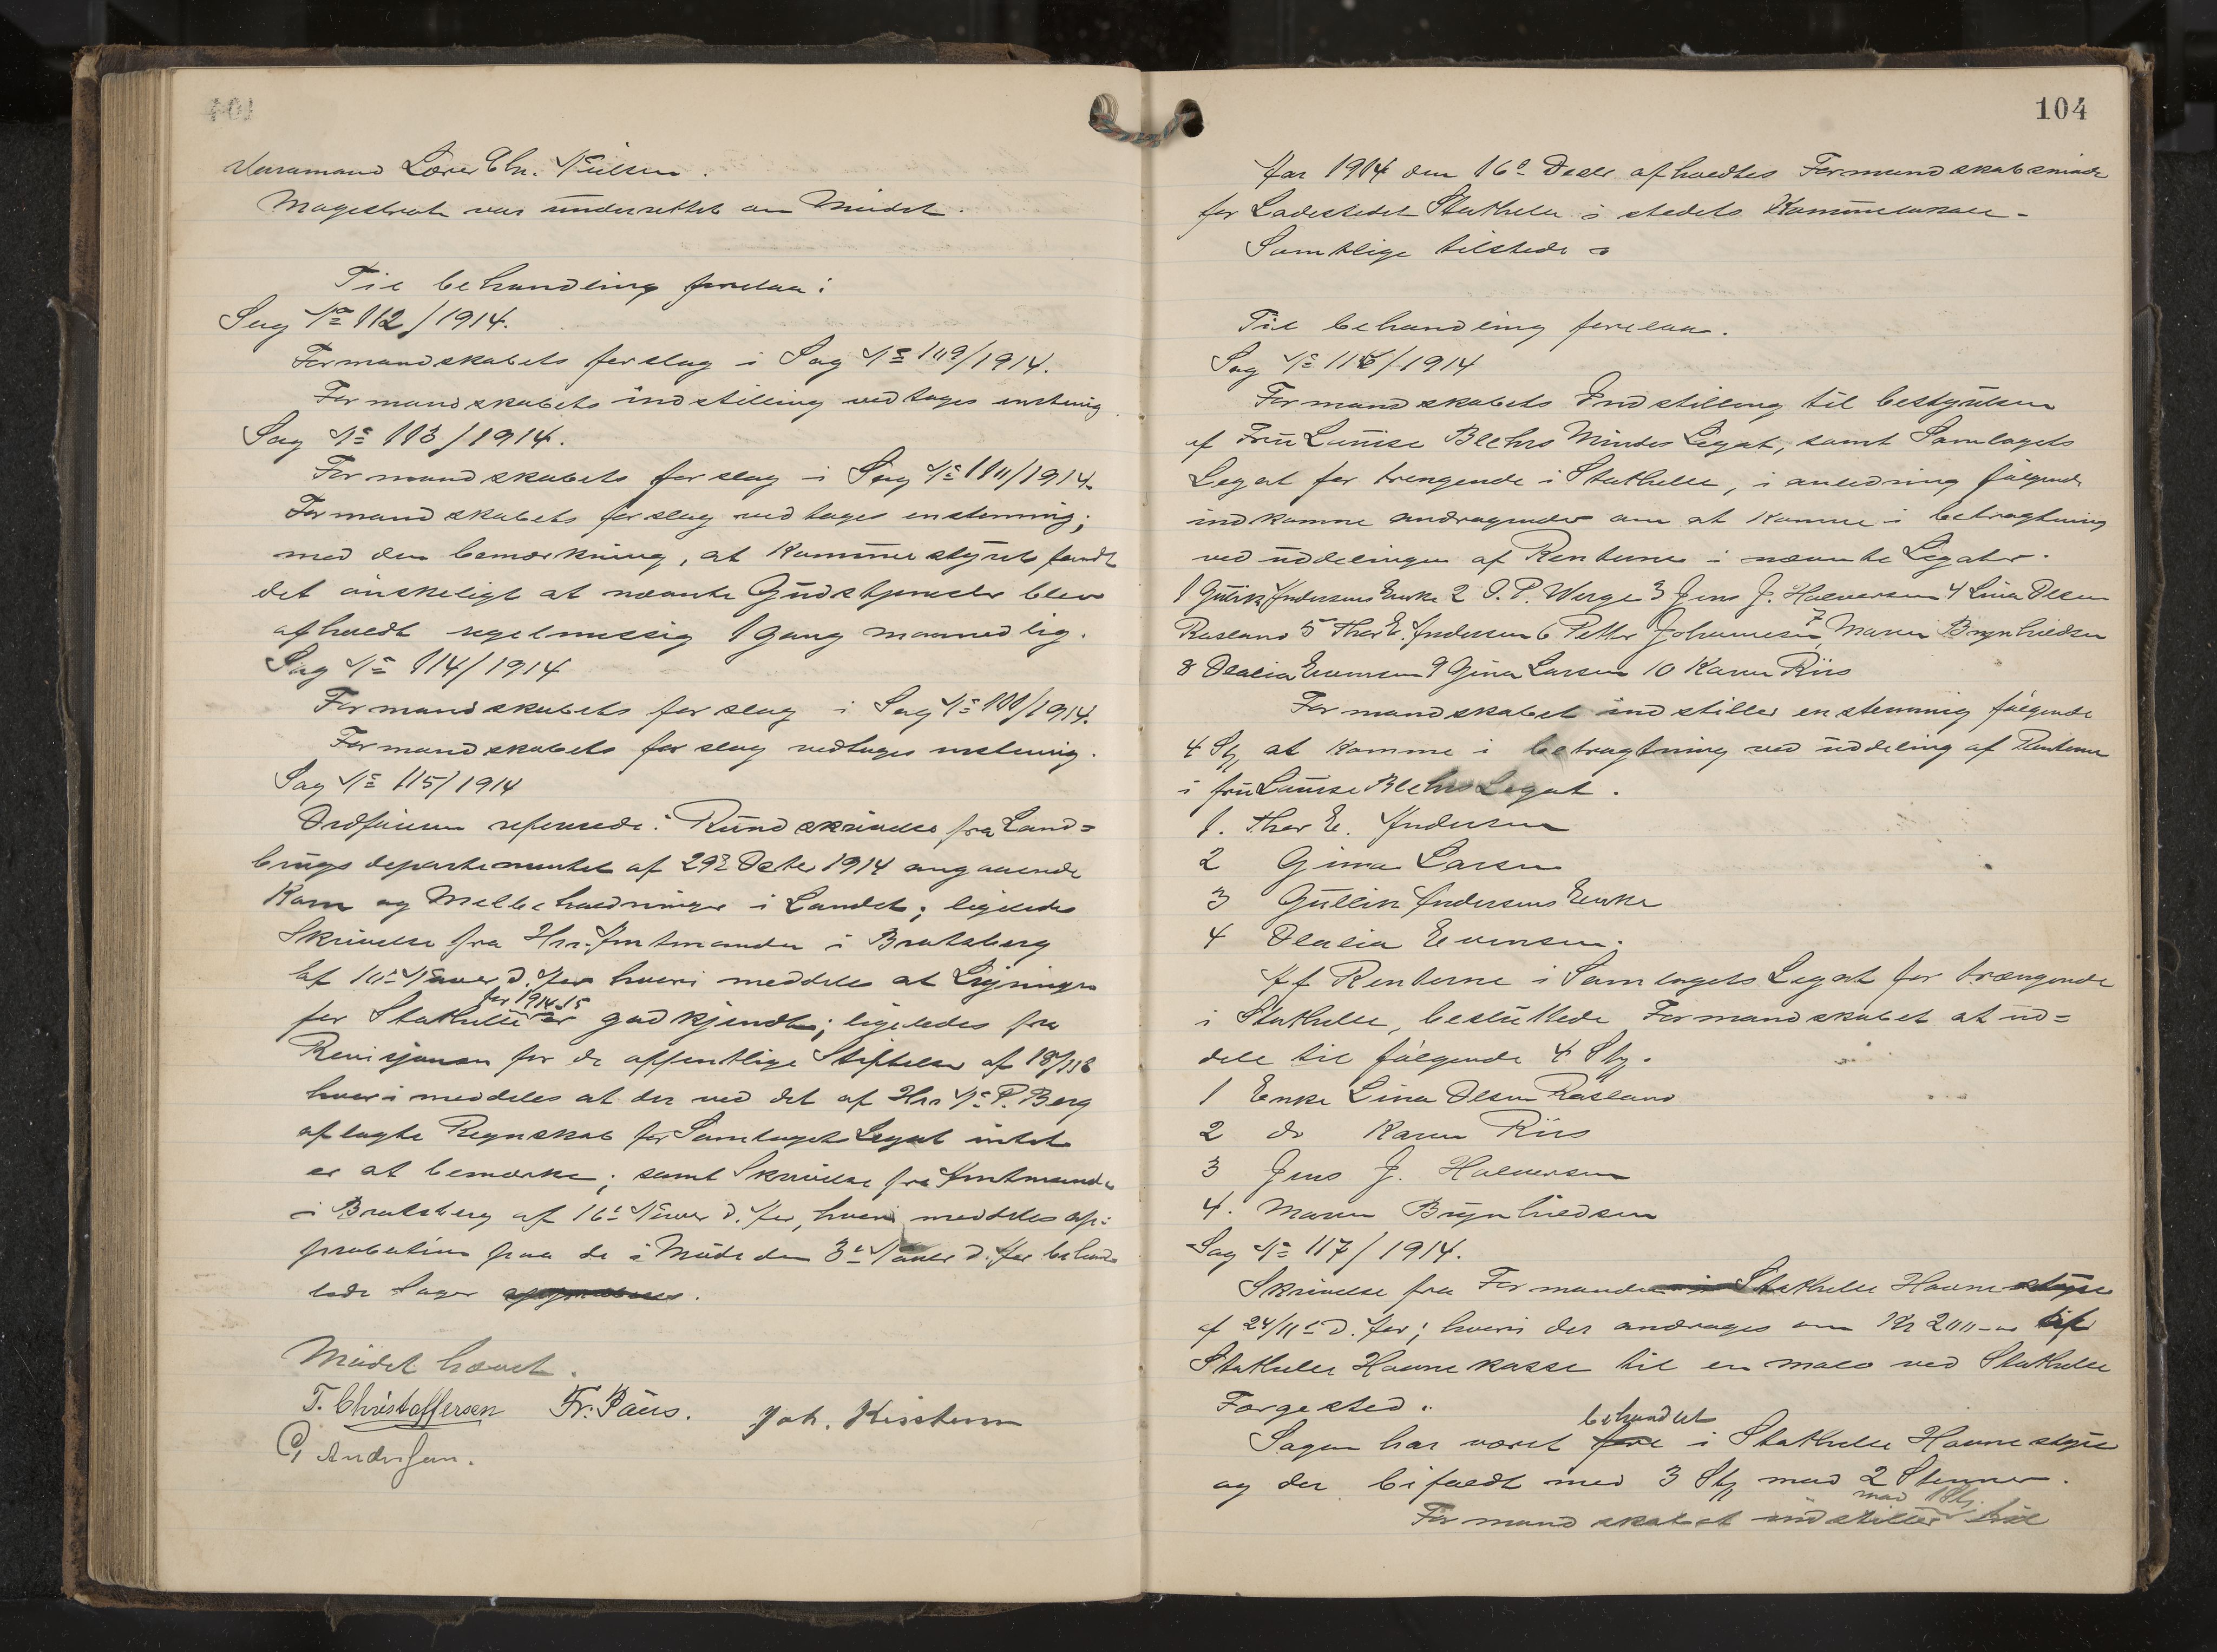 Varamand Lærer Chr. Nilsen.
Magistraten var underrettet om Mødet.
Til behandling forelaa:
Sag No 112/1914.
Formandskabets forslag i Sag No 109/1914.
Formandskabets indstilling vedtages enstemig.
Sag No 113/1914.
Formandskabets forslag i Sag No 110/1914.
Formandskabets forslag vedtages enstemmig;
med den bemærkning, at Kommunestyret fandt
det ønskeligt at nævnte Gudstjenester blev
afholdt regelmessig 1 Gang maanedlig.
Sag No 114/1914
Formandskabets forslag i Sag No 111/1914.
Formandskabets forslag vedtages enstemig.
Sag No 115/1914
Ordføreren refererede: Rundskrivelse fra Land=
brugsdepartementet af 29de Octbr 1914 angaaende
Korn og Melbeholdninger i Landet; ligeledes
Skrivelse fra Hrr. Amtmanden i Bratsberg
af 10de Novbr d. Aar hvori meddeles at Ligningen
for 1914-15
for Stathelle er godkjendt; ligeledes fra
Revisjonen for de offentlige Stiftelser af
hvori meddeles at der ved det af Hrr N. P. Berg
aflagte Regnskab for Samlagets Legat intet
er at bemærke; samt Skrivelse fra Amtmanden
i Bratsberg af 16de Novbr d. Aar, hvori meddeles ap:
probation paa de i Møde den 3de Novbr d. Aar behand=
lede Sager
Mødet hævet.
T. Christoffersen Fr. Paus. Joh.
G Andersen.
104
Aar 1914 den 16de Decbr afholdtes Formandskabsmøde
for Ladestedet Stathelle i stedets Kommunelokale.
Samtlige tilstede
Til behandling forelaa.
Sag No 116/1914
Formandskabets Indstilling til bestyrelsen
af Fru Louise Blehrs Mindes Legat, samt Samlagets
Legat for trengende i Stathelle, i anledning følgende
indkomne andragender om at komme i betragtning
ved uddelingen af Renterne i nævnte Legater.
1 Gullik Andersens Enke 2 O. P. Werge 3 Jens J. Halvorsen 4 Lina Olsen
Rasland 5 Thor E. Andersen 6 Petter Johannesen 7 Maren Brynhildsen
8 Olalia Evensen 9 Gina Larsen 10 Karen Riis
Formandskabet indstiller enstemmig følgende
4 Stk at komme i betragtning ved uddeling af Renterne
i fru Louise Blehrs Legat.
1. Thor E. Andersen
2 Gina Larsen
3 Gullik Andersens Enke
4 Olalia Evensen.
Af Renterne i Samlagets Legat for trængende
i Stathelle, besluttede Formandskabet at ud=
dele til følgende 4 Stk.
1 Enke Lina Olsen Rasland
2 do Karen Riis
3 Jens J. Halvorsen
4. Maren Brynhildsen
Sag No 117/1914.
Skrivelse fra Formanden i Stathelle Havnestyre
af 24/11 d. Aar; hvori der andrages om Kr 200-00 af
Stathelle Havnekasse til en molo ved Stathelle
Færgested.
behandlet
Sagen har været fore i Stathelle Havnestyre
og der bifaldt med 3 Stk mod 2 Stemmer.
mod 1 St.
Formandskabet indstiller til